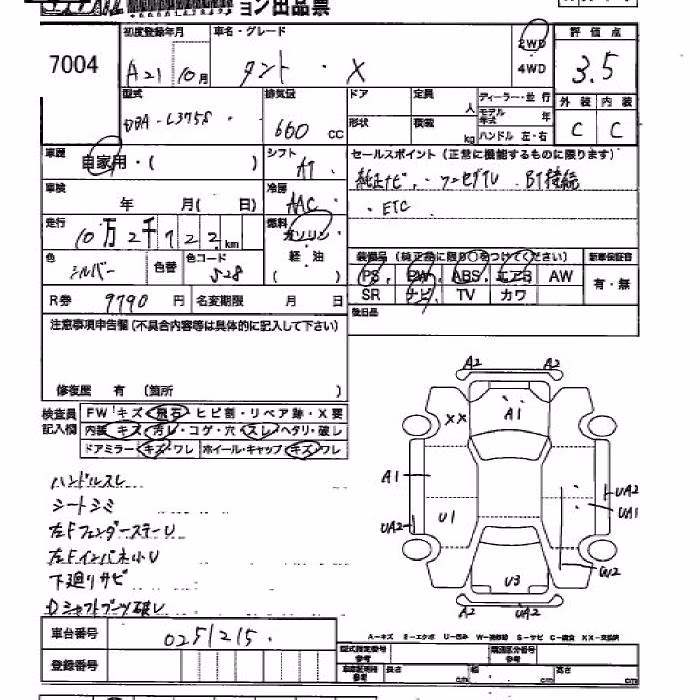 ョン出品票
7004
初度登録年月 車名・グレード 評価点
A21 10月 タント・X 2WD 4WD 3.5
型式 排気量 ドア 定員 人 ディーラー・並行 外装 内装
DBA-L375S 660 cc 形状 積載 kg モデル年式 年 C C
ハンドル 左・右
車歴 自家用・( ) シフト AT セールスポイント(正常に機能するものに限ります)
純正ナビ・ワンセグTV BT接続
車検 年 月( 日) 冷房 AAC
・ETC
走行 10万2千722km 燃料 ガソリン 軽・油 ( )
色 シルバー 色替 色コード S28
装備品(純正品に限り○をつけてください) 新車保証書
PS PW ABS エアB AW 有・無
SR ナビ TV カワ
R券 9790円 名変期限 月 日
後日品
注意事項申告欄(不具合内容等は具体的に記入して下さい)
修復歴 有 (箇所 )
検査員記入欄 FW キズ・飛石・ヒビ割・リペア跡・X要
内装 キズ・汚レ・コゲ・穴・スレ・ヘタリ・破レ
ドアミラー キズ・ワレ ホイール・キャップ キズ・ワレ
A2 A2
XX A1
A1
UA2
UA1
U1
UA2
W2
U3
A2 UA2
ハンドルスレ
シートシミ
左FフェンダーステーU
左Fインパネ小U
下廻リサビ
Dシャフトブーツ破レ
A-キズ E-エクボ U-凹み W-補修跡 S-サビ C-腐食 XX-交換済
車台番号 0251215
型式指定番号 参考 類別区分番号 参考
登録番号
長さ cm 幅 cm 高さ cm